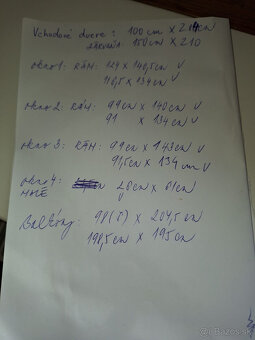 Vchodové dvere: 100 cm x 210cm
150cm x 210
okno 1: RÁM: 124 x 140,5cm V
116,5 x 134cm V
okno 2: RÁM: 99cm x 140cm V
91 x 134cm V
okno 3: RÁM: 99cm x 143cm V
91,5cm x 134cm V
okno 4: 20cm x 61cm
MALÉ V
Balkóny: 98(5) x 204,5cm
198,5cm x 195cm
bazos.sk